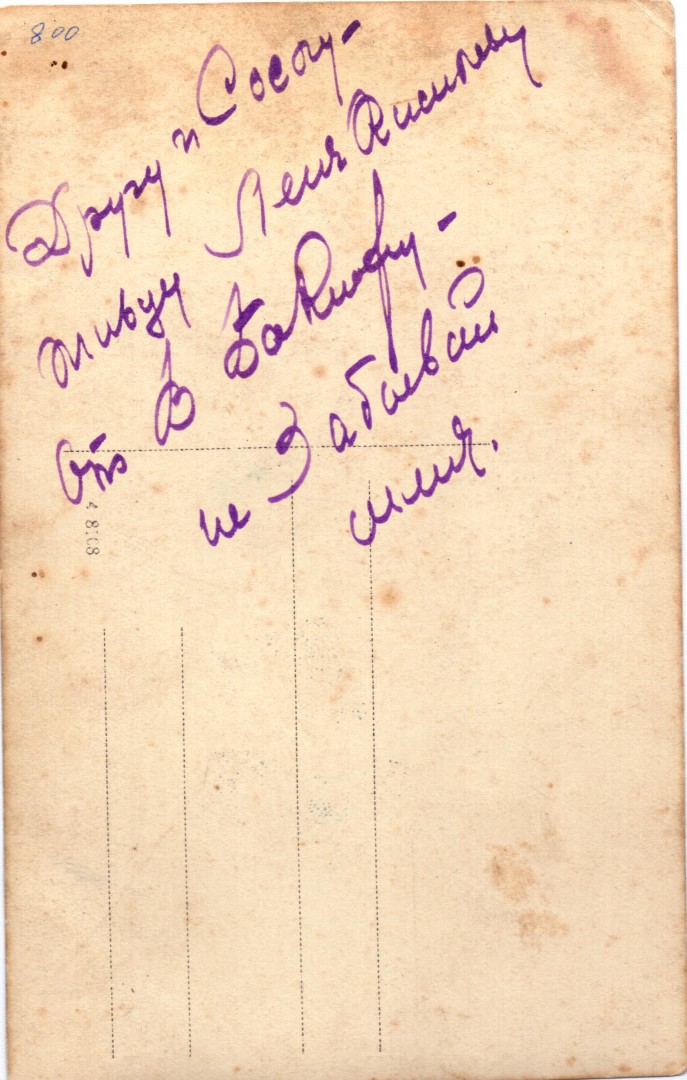 800
Другу и Сослу-
живцу Леня Киситеву
От В Бакиофи-
не Забывай
меня.
4 8108